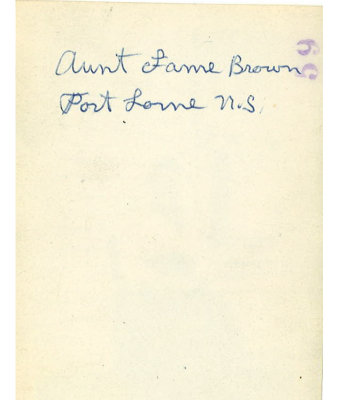 Aunt Fame Brown
Port Lorne N.S.
99